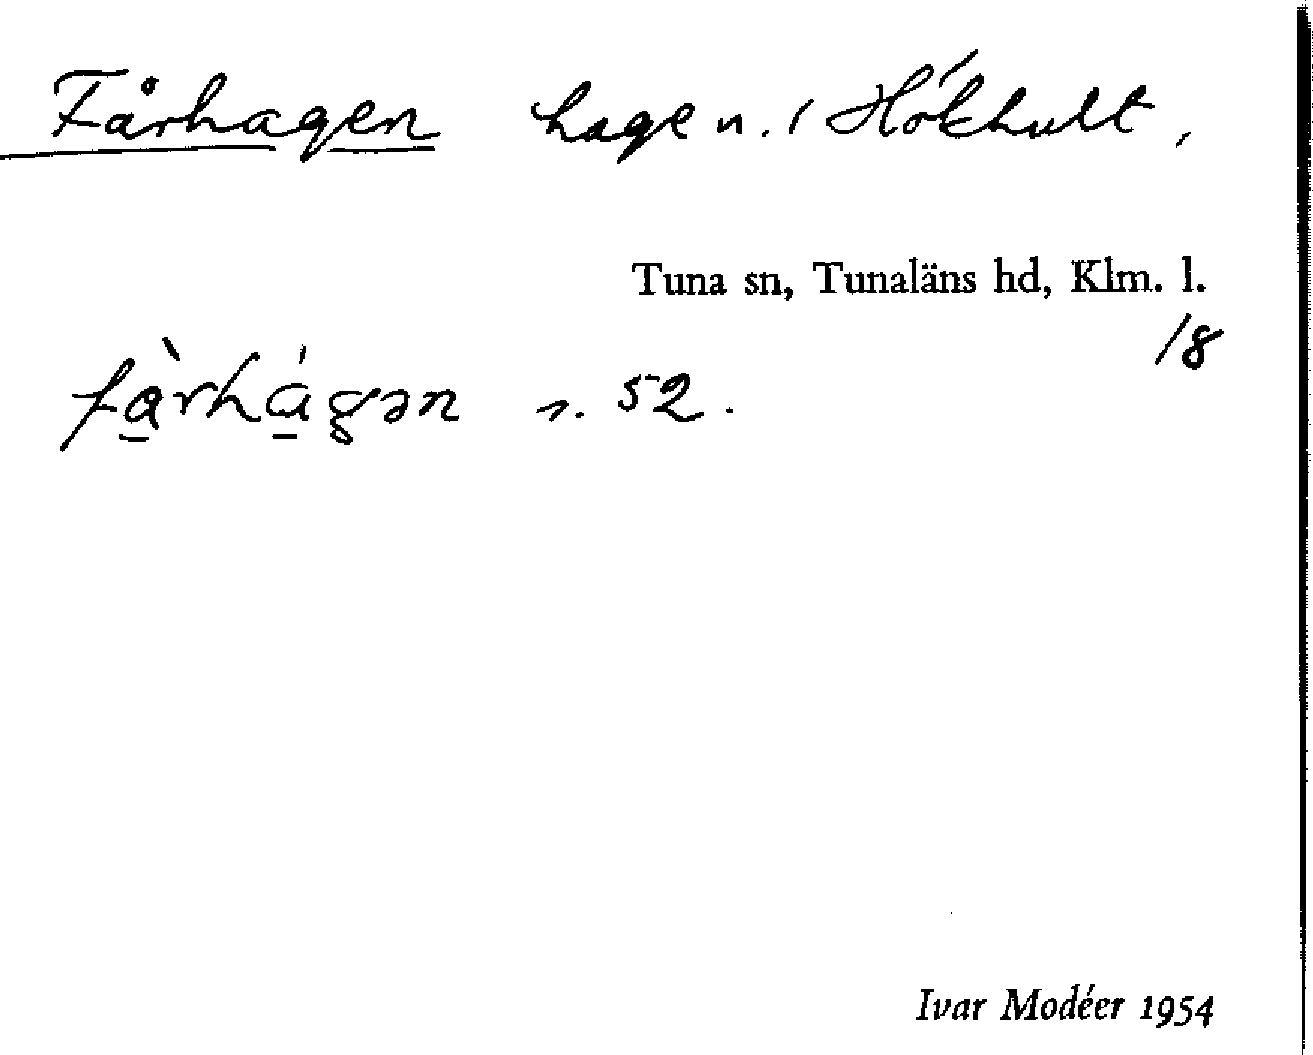 Fårhagen hagen. i Hökhult,
Tuna sn, Tunaläns hd, Klm. l.
/8
fàrhágən s. 52.
Ivar Modéer 1954